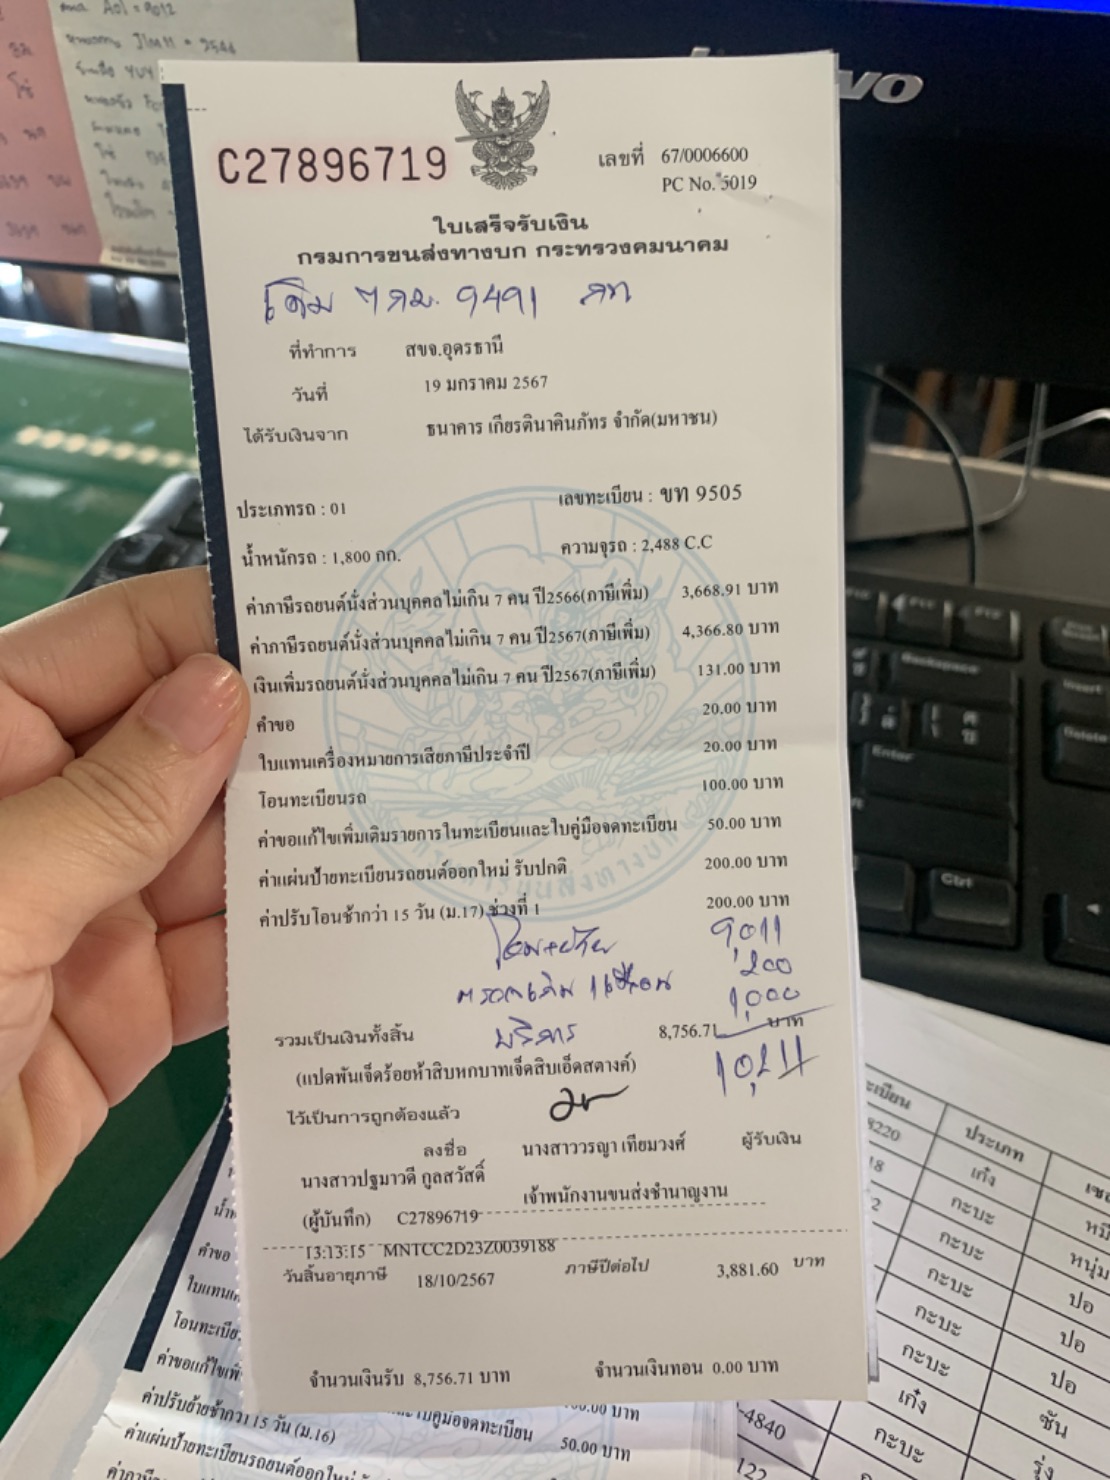 C27896719
เลขที่ 67/0006600
PC No. 5019
ใบเสร็จรับเงิน
กรมการขนส่งทางบก กระทรวงคมนาคม
เดิม 7 กม. 9491 กท
ที่ทำการ สขจ.อุดรธานี
วันที่ 19 มกราคม 2567
ได้รับเงินจาก ธนาคาร เกียรตินาคินภัทร จำกัด(มหาชน)
ประเภทรถ : 01 เลขทะเบียน : ขท 9505
น้ำหนักรถ : 1,800 กก. ความจุรถ : 2,488 C.C
ค่าภาษีรถยนต์นั่งส่วนบุคคลไม่เกิน 7 คน ปี2566(ภาษีเพิ่ม) 3,668.91 บาท
ค่าภาษีรถยนต์นั่งส่วนบุคคลไม่เกิน 7 คน ปี2567(ภาษีเพิ่ม) 4,366.80 บาท
เงินเพิ่มรถยนต์นั่งส่วนบุคคลไม่เกิน 7 คน ปี2567(ภาษีเพิ่ม) 131.00 บาท
คำขอ 20.00 บาท
ใบแทนเครื่องหมายการเสียภาษีประจำปี 20.00 บาท
โอนทะเบียนรถ 100.00 บาท
ค่าขอแก้ไขเพิ่มเติมรายการในทะเบียนและใบคู่มือจดทะเบียน 50.00 บาท
ค่าแผ่นป้ายทะเบียนรถยนต์ออกใหม่ รับปกติ 200.00 บาท
ค่าปรับโอนช้ากว่า 15 วัน (ม.17) ช่วงที่ 1 200.00 บาท
9,011
200
1,000
บริการ
รวมเป็นเงินทั้งสิ้น 8,756.71 บาท
10,211
(แปดพันเจ็ดร้อยห้าสิบหกบาทเจ็ดสิบเอ็ดสตางค์)
ไว้เป็นการถูกต้องแล้ว
ลงชื่อ นางสาววรญา เทียมวงศ์ ผู้รับเงิน
นางสาวปฐมาวดี กูลสวัสดิ์ เจ้าพนักงานขนส่งชำนาญงาน
(ผู้บันทึก) C27896719
13:13:15 MNTCC2D23Z0039188
วันสิ้นอายุภาษี 18/10/2567 ภาษีปีต่อไป 3,881.60 บาท
จำนวนเงินรับ 8,756.71 บาท จำนวนเงินทอน 0.00 บาท
คำขอ
โอนทะเบีย
ค่าปรับย้ายช้ากว่า 15 วัน (ม.16)
คู่มือจดทะเบียน 50.00 บาท
ค่าแผ่นป้ายทะเบียนรถยนต์ออกใหม่
ประเภท
เก๋ง
กะบะ
หนุ่ม
กะบะ
ปอ
กะบะ
ปอ
กะบะ
ปอ
กะบะ
ซัน
เก๋ง
-4840
กะบะ
122
Backspace
Insert
Delete
Enter
Ctrl